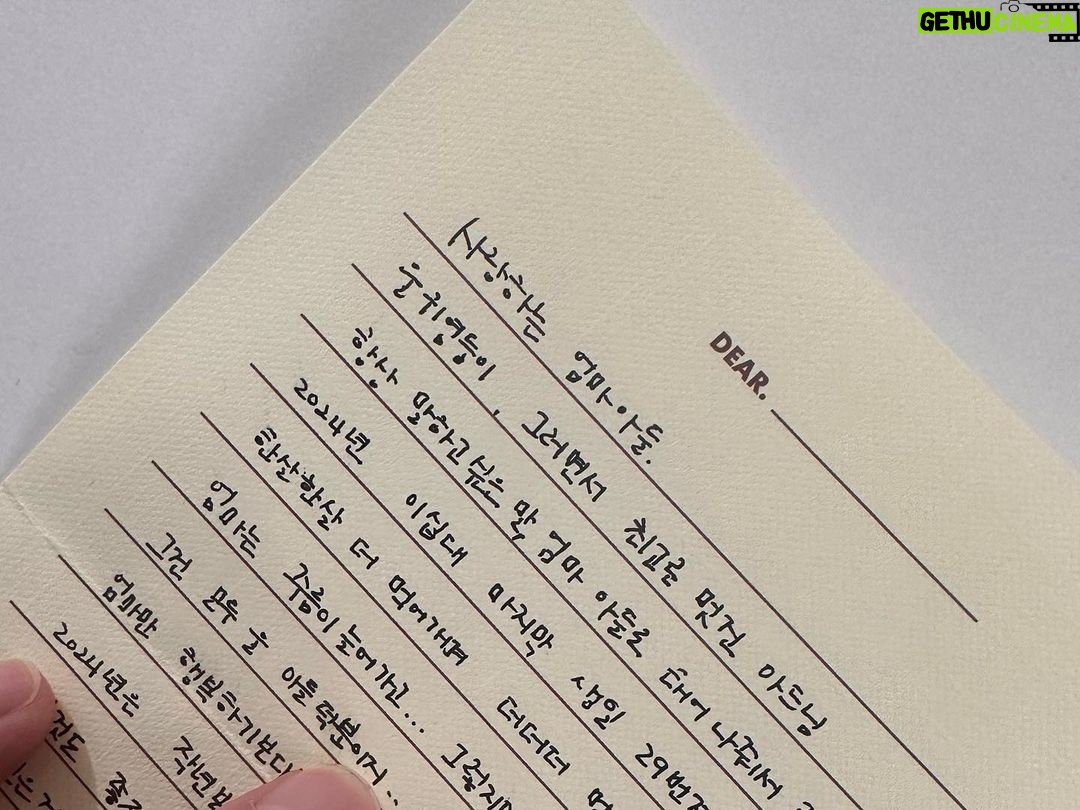 GETHU CINEMA
DEAR.
사랑하는 엄마아들.
눈치껑둥이, 그러면서 최고로 멋진 아드님
항상 말하고싶은 말 엄마 아들로 태어나줘서
2024년 이십대 마지막 생일 29번
한살한살 더 먹어가며 더더더
엄마는 주름이 늘어가고... 그렇지만
그건 모두 울 아들덕분이지..
엄마만 행복하기보다
2024년은 작년보
것도 좋